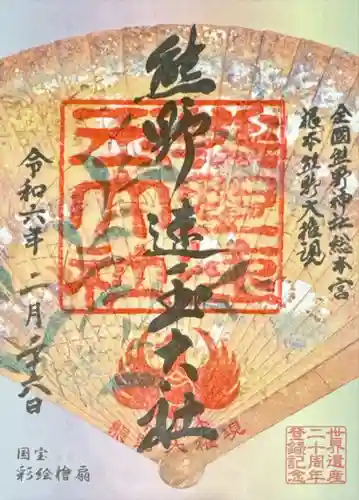 全國熊野神社總本宮
根本熊野大権現
熊野速玉大社
令和六年二月二十六日
国宝
彩絵檜扇
世界遺産
二十周年
登録記念